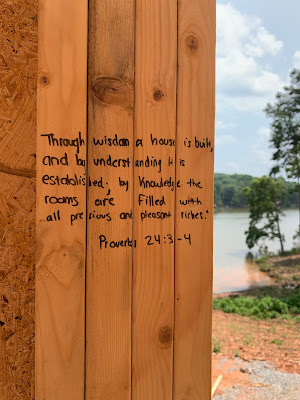 Through wisdom a house is built,
and by understanding it is
established. by Knowledge the
rooms are filled with
all precious and pleasant riches."
Proverbs 24:3-4